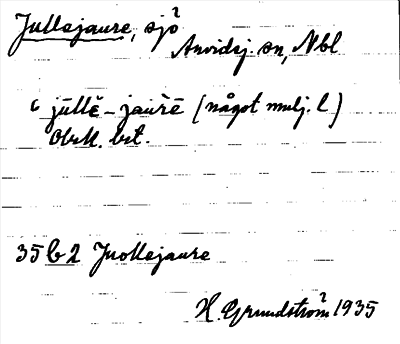 Jullejaure, sjö
Arvidsj. sn, Nbl
jūllĕ-jaurē (något mulj. l)
Obekl. bet.
35 b 2 Juollejaure
H. Grundström 1935